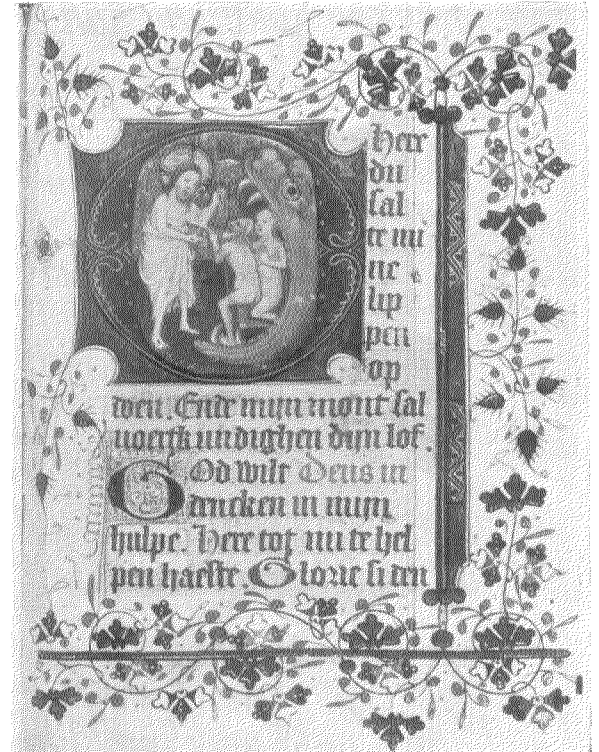 Here
du
sal
te mi
ne
lip
pen
op
doen. Ende mijn mont sal
voerkundighen dijn lof.
God wilt Deus in
dencken in mijn
hulpe. Here tot mi te hel
pen haeste. Glorie si den